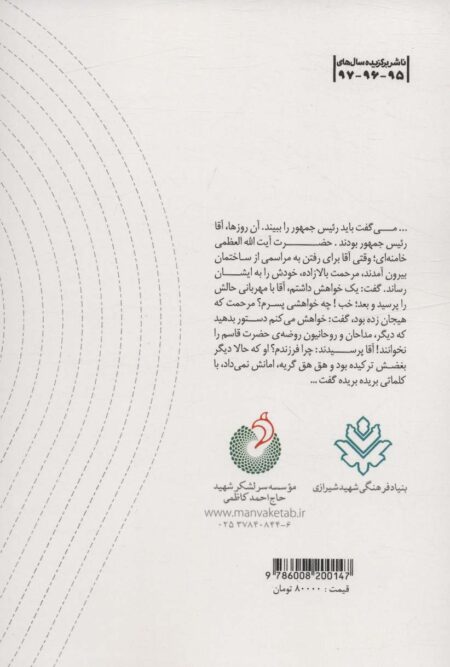 ناشر برگزیده سال‌های
۹۵-۹۶-۹۷
... می‌گفت باید رئیس جمهور را ببیند. آن روزها، آقا
رئیس جمهور بودند. حضرت آیت الله العظمی
خامنه‌ای؛ وقتی آقا برای رفتن به مراسمی از ساختمان
بیرون آمدند، مرحمت بالازاده، خودش را به ایشان
رساند. گفت: یک خواهش داشتم، آقا با مهربانی حالش
را پرسید و بعد؛ خب! چه خواهشی پسرم؟ مرحمت که
هیجان زده بود، گفت: خواهش می‌کنم دستور بدهید
که دیگر، مداحان و روحانیون روضه‌ی حضرت قاسم را
نخوانند! آقا پرسیدند: چرا فرزندم؟ او که حالا دیگر
بغضش ترکیده بود و هق هق گریه، امانش نمی‌داد، با
کلماتی بریده بریده گفت ...
بنیاد فرهنگی شهید شیرازی
مؤسسه سرلشکر شهید
حاج احمد کاظمی
www.manvaketab.ir
۰۲۵ ۳۷۸۴۰۸۴۴-۶
9 786008 200147
قیمت: ۸۰۰۰۰ تومان